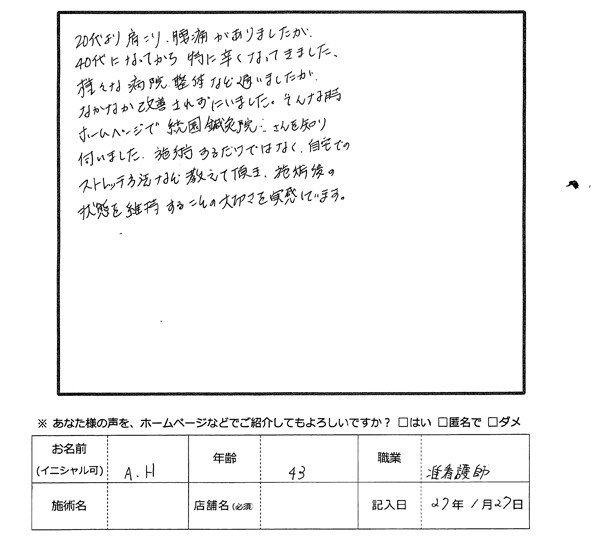 20代より肩こり、腰痛がありましたが、
40代になってから特に辛くなってきました。
様々な病院整体など通いましたが、
なかなか改善されずにいました。そんな時
ホームページで 統園鍼灸院 さんを知り
伺いました。施術するだけではなく、自宅での
ストレッチ方法など教えて頂き、施術後の
状態を維持することの大切さを実感しています。
※ あなた様の声を、ホームページなどでご紹介してもよろしいですか？ □はい □匿名で □ダメ
お名前 (イニシャル可) A.H 年齢 43 職業 准看護師
施術名 店舗名 (必須) 記入日 27年 1月27日